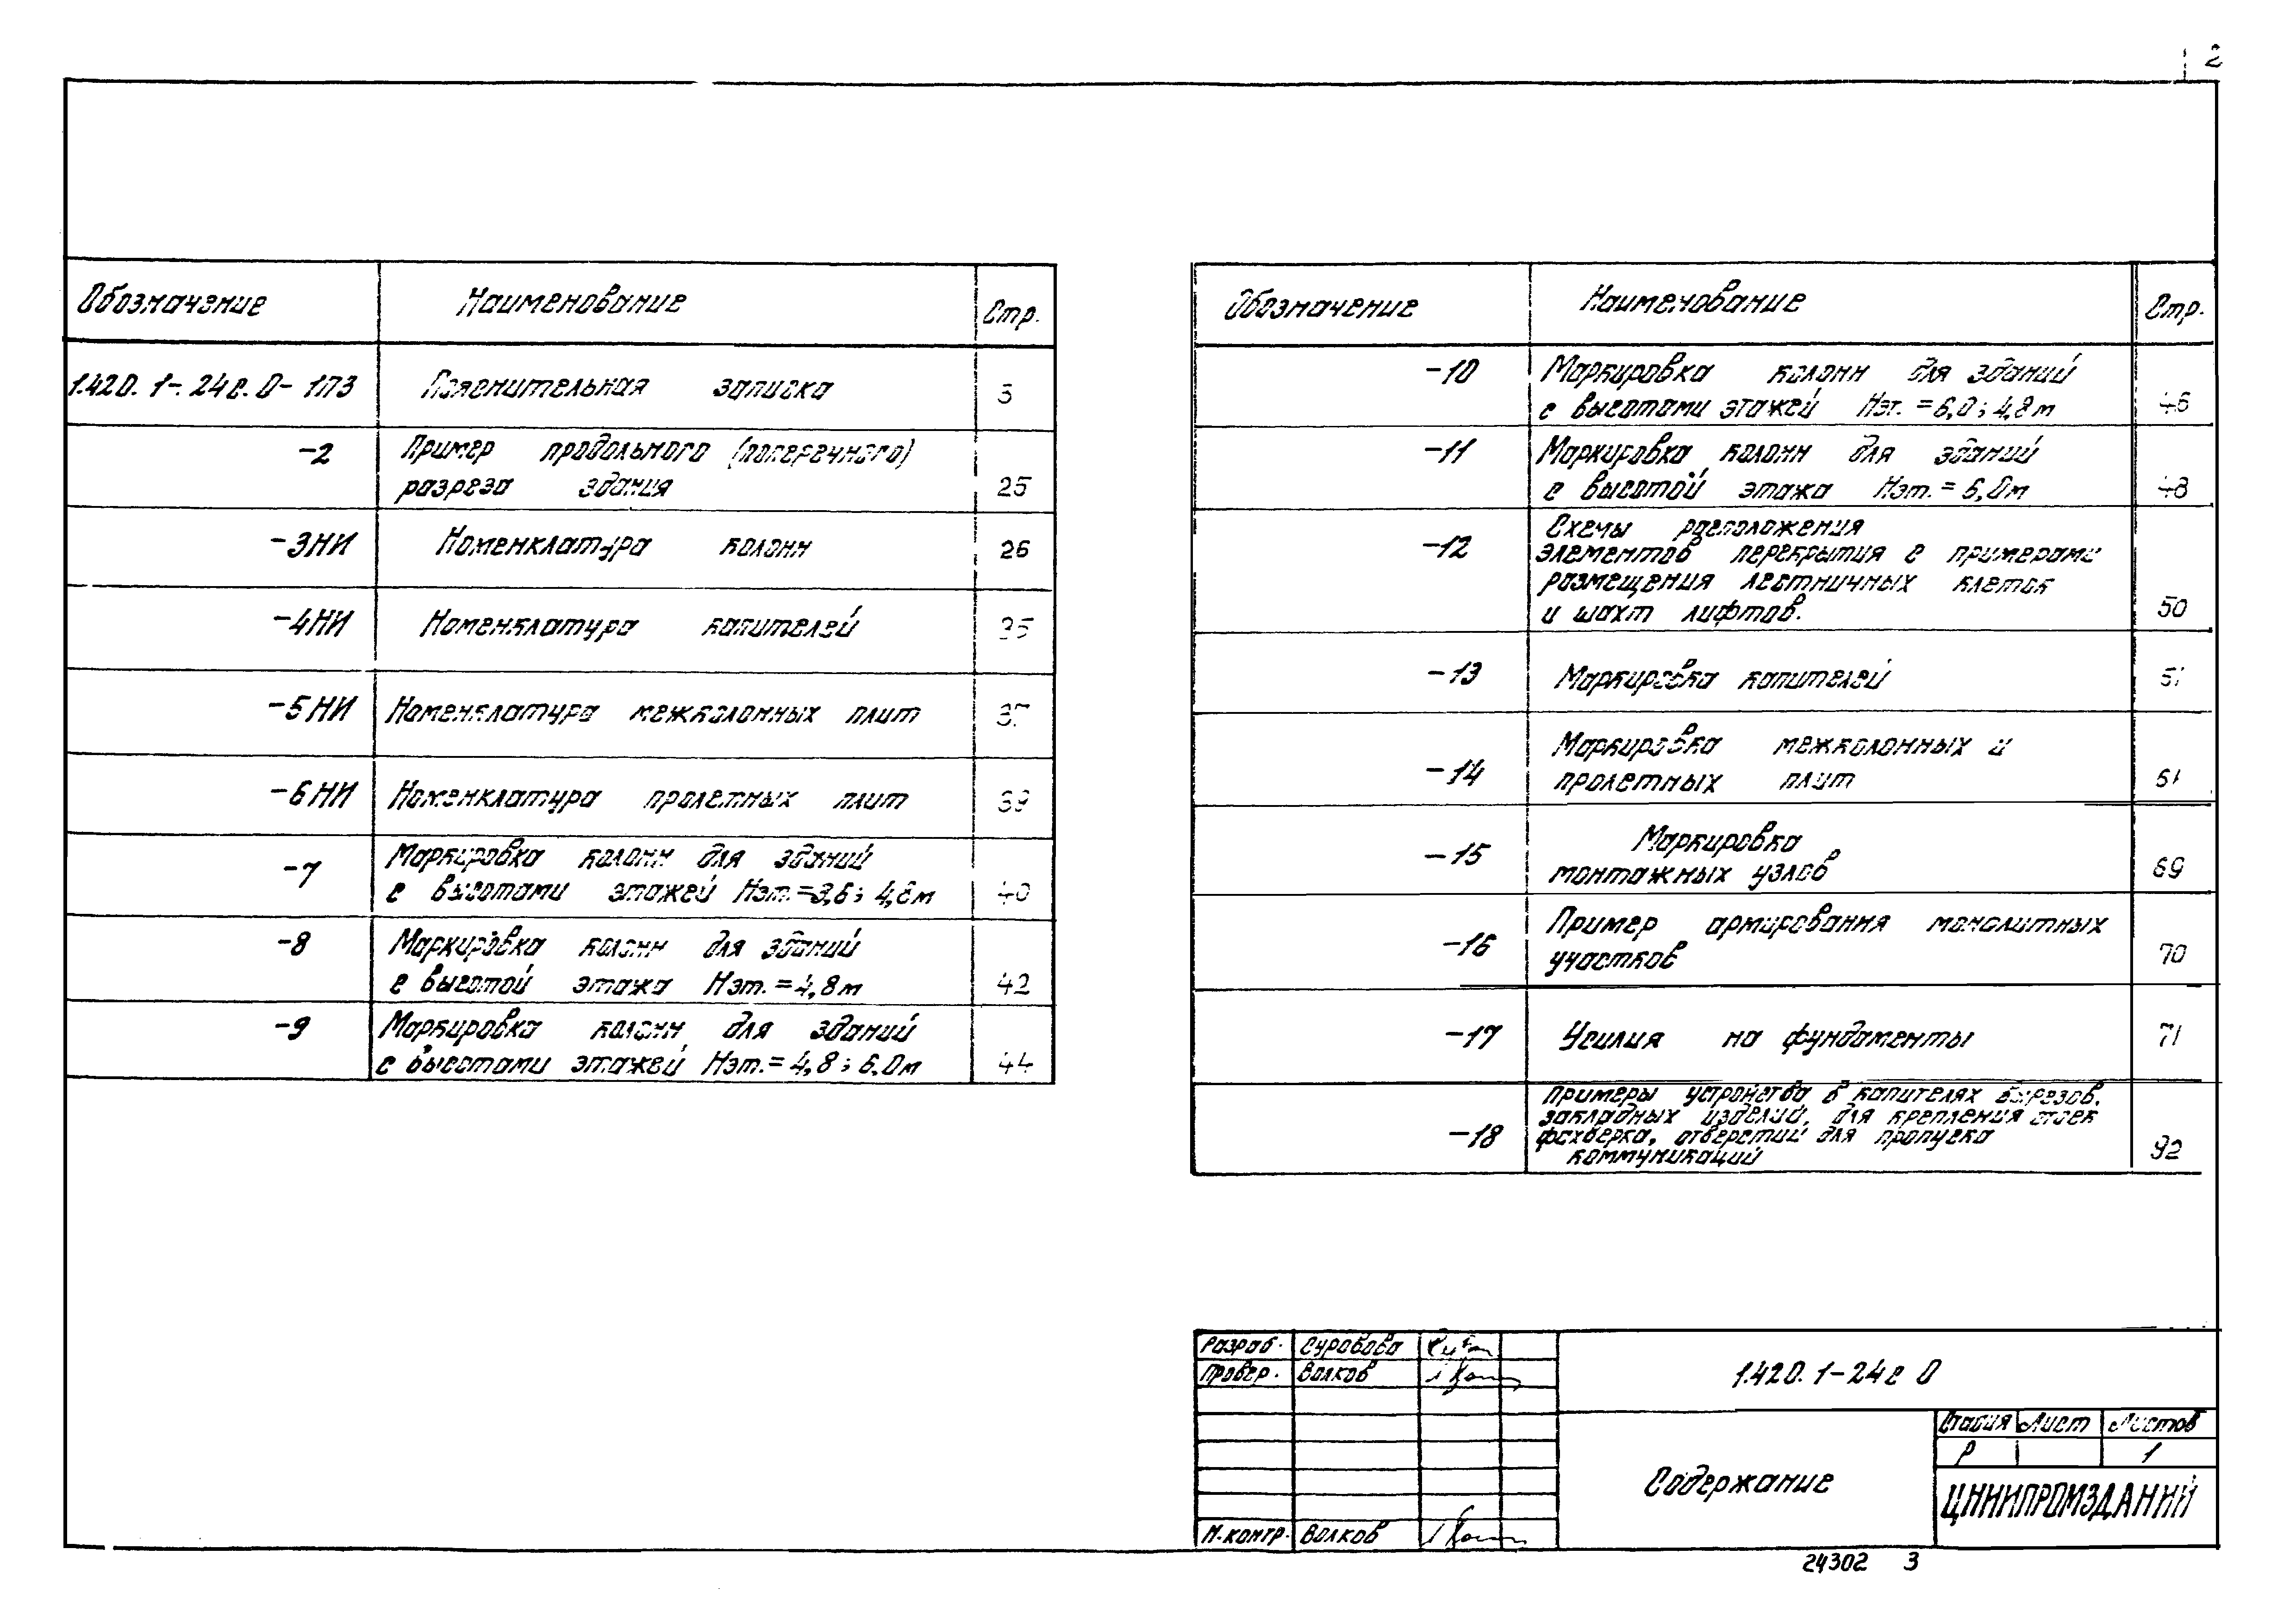 2
Обозначение Наименование Стр.
1.420.1-24с.0-1ПЗ Пояснительная записка 3
-2 Пример продольного (поперечного)
разреза здания 25
-3НИ Номенклатура колонн 26
-4НИ Номенклатура капителей 35
-5НИ Номенклатура межколонных плит 37
-6НИ Номенклатура пролетных плит 39
-7 Маркировка колонн для зданий
с высотами этажей Нэт.=3,6; 4,8м 40
-8 Маркировка колонн для зданий
с высотой этажа Нэт.=4,8м 42
-9 Маркировка колонн для зданий
с высотами этажей Нэт.=4,8; 6,0м 44
Обозначение Наименование Стр.
-10 Маркировка колонн для зданий
с высотами этажей Нэт.=6,0; 4,8м 46
-11 Маркировка колонн для зданий
с высотой этажа Нэт.=6,0м 48
-12 Схемы расположения
элементов перекрытия с примерами
размещения лестничных клеток
и шахт лифтов. 50
-13 Маркировка капителей
-14 Маркировка межколонных и
пролетных плит 61
-15 Маркировка
монтажных узлов 69
-16 Пример армирования монолитных
участков 70
-17 Усилия на фундаменты 71
-18 Примеры устройства в капителях вырезов,
закладных изделий, для крепления стоек
фахверка, отверстий для пропуска
коммуникаций 92
Разраб. Суровова
Провер. Волков
Н.контр. Волков
1.420.1-24с 0
Содержание
Стадия Лист Листов
Р 1
ЦНИИПРОМЗДАНИЙ
24302 3